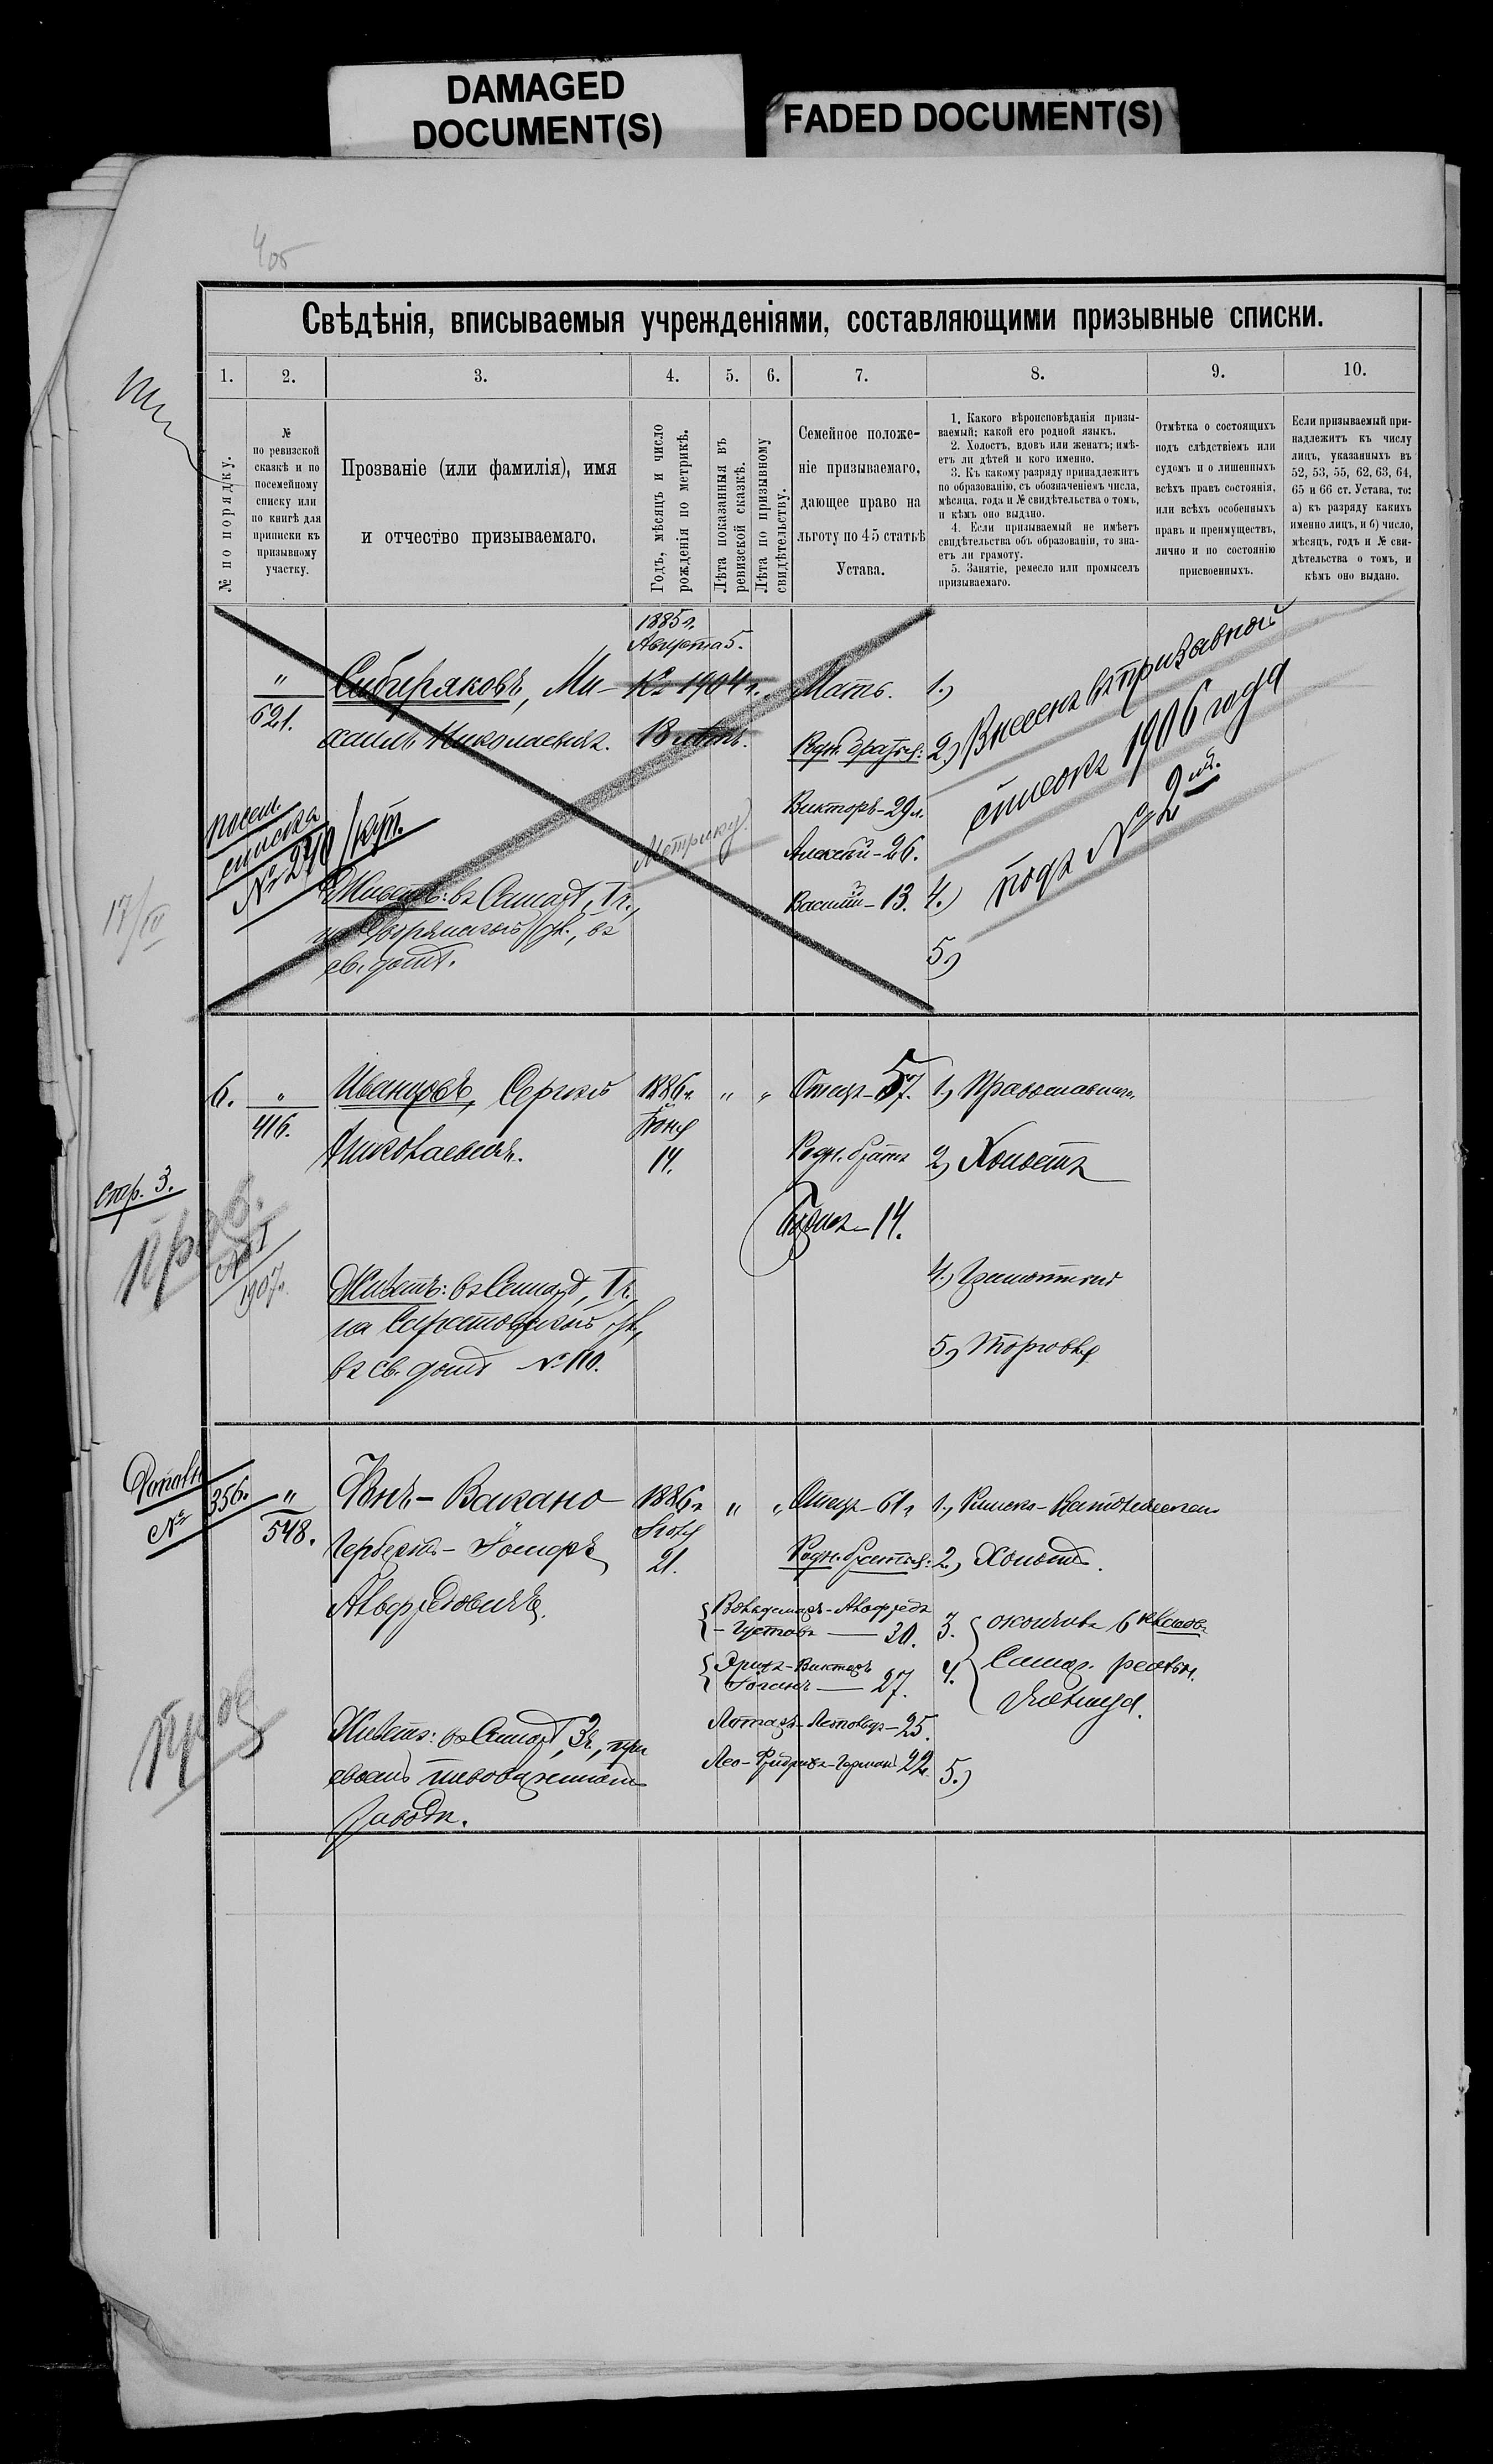 DAMAGED
DOCUMENT(S)
FADED DOCUMENT(S)
Свѣдѣнія, вписываемыя учрежденіями, составляющими призывные списки.
1.
2.
3.
4.
5.
6.
7.
8.
9.
10.
№ по порядку.
№
по ревизской
сказкѣ и по
посемейному
списку или
по книгѣ для
приписки къ
призывному
участку.
Прозваніе (или фамилія), имя
и отчество призываемаго.
Годъ, мѣсяцъ и число
рожденія по метрикѣ.
Лѣта показанныя въ
ревизской сказкѣ.
Лѣта по призывному
свидѣтельству.
Семейное положе-
ніе призываемаго,
дающее право на
льготу по 45 статьѣ
Устава.
1. Какого вѣроисповѣданія призы-
ваемый; какой его родной языкъ.
2. Холостъ, вдовъ или женатъ; имѣ-
етъ ли дѣтей и кого именно.
3. Къ какому разряду принадлежитъ
по образованію, съ обозначеніемъ числа,
мѣсяца, года и № свидѣтельства о томъ,
и кѣмъ оно выдано.
4. Если призываемый не имѣетъ
свидѣтельства объ образованіи, то зна-
етъ ли грамоту.
5. Занятіе, ремесло или промыселъ
призываемаго.
Отмѣтка о состоящихъ
подъ слѣдствіемъ или
судомъ и о лишенныхъ
всѣхъ правъ состоянія,
или всѣхъ особенныхъ
правъ и преимуществъ,
лично и по состоянію
присвоенныхъ.
Если призываемый при-
надлежитъ къ числу
лицъ, указанныхъ въ
52, 53, 55, 62, 63, 64,
65 и 66 ст. Устава, то:
а) къ разряду какихъ
именно лицъ, и б) число,
мѣсяцъ, годъ и № сви-
дѣтельства о томъ, и
кѣмъ оно выдано.
"
621.
Сибиряковъ, Ми-
хаилъ Николаевичъ.
1885 г.
Августа 5.
Къ 1904 г.
18 лѣтъ.
Метрику
Мать.
Родн. братья:
Викторъ - 29 л.
Алексѣй - 26.
Василій - 13.
1.)
2.) Внесенъ въ призывной
списокъ 1906 года
подъ № 2
4.)
5.)
посем.
списка
№ 240 / куп.
17/III
Живетъ: въ Самарѣ, 1 ч.,
на Дворянской ул., въ
св. домѣ.
6.
"
416.
Иванцовъ, Сергѣй
Николаевичъ.
1886 г.
Іюня
14.
"
"
Отецъ - 57.
Родн. братъ
Борисъ - 14.
1.) Православнаго
2.) Холостъ
4.) Грамотный
5.) Торговля
стр. 3.
1907 г.
Живетъ: въ Самарѣ, 1 ч.,
на Саратовской ул.,
въ св. домѣ № 110.
№ 356.
"
548.
Фонъ-Вакано
Гербертъ-
Альфредовичъ.
1886 г.
21.
"
"
Отецъ - 61 г.
Родн. братья:
Вольдемаръ-Альфредъ
- Густавъ — 30.
Эрихъ-Викторъ
Іоганъ — 27.
Лотаръ- - 25.
Лео-Фридрихъ-Германъ 22.
1.) Римско-Католическаго
2.) Холостъ.
3. окончилъ 6 классовъ
4. Самар. реальн.
училища.
5.)
Живетъ: въ Самарѣ, 3 ч., при
своемъ пивоваренномъ
заводѣ.